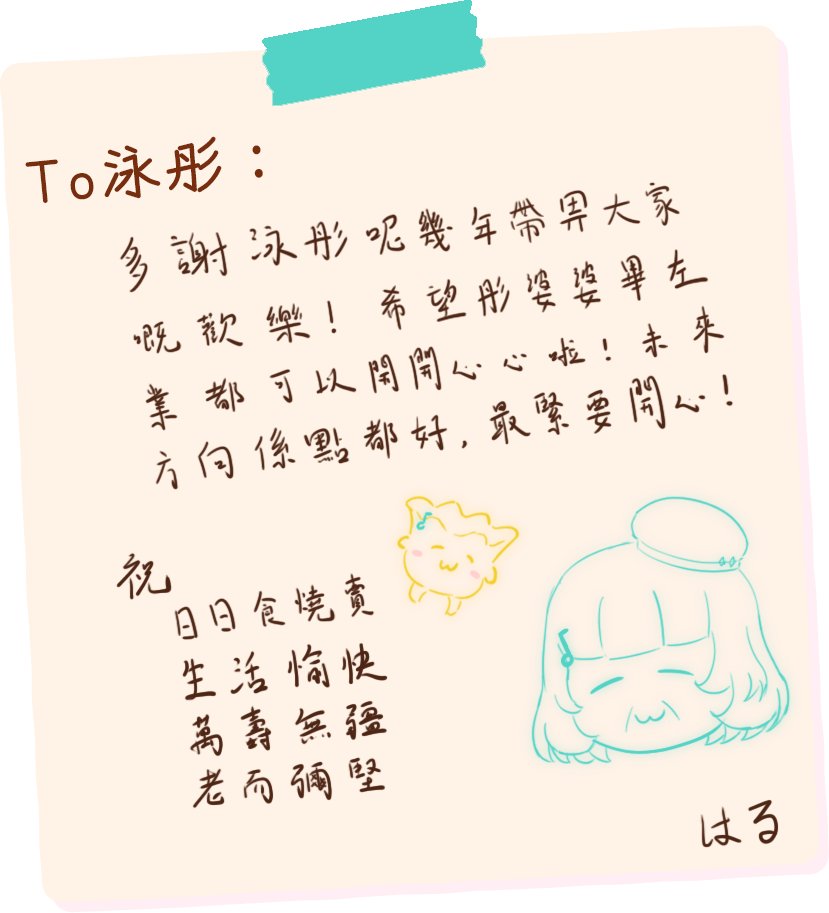 To泳彤：
多謝泳彤呢幾年帶畀大家
嘅歡樂！希望彤婆婆畢左
業都可以開開心心啦！未來
方向係點都好，最緊要開心！
祝
日日食燒賣
生活愉快
萬壽無疆
老而彌堅
はる